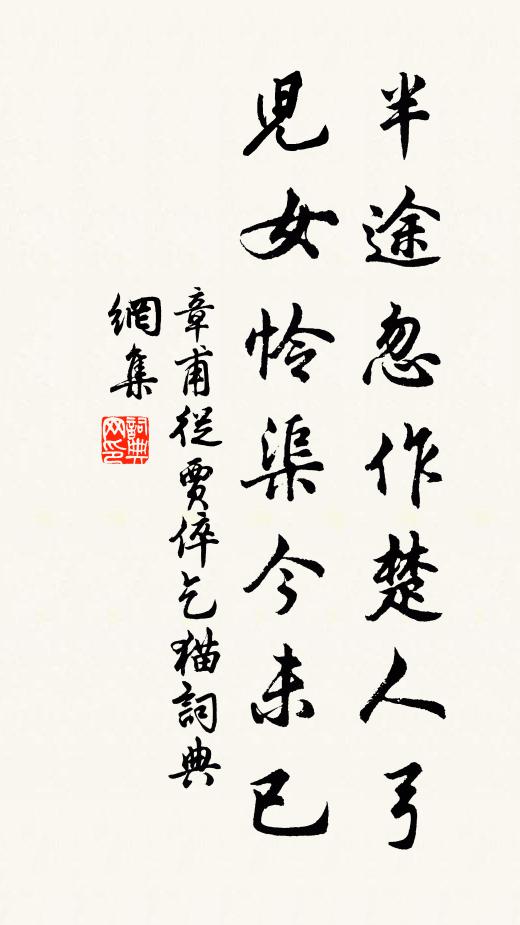 半途忽作楚人弓
兒女怜渠今未已
章甫從賈倅乞猫詞典
網集
詞典網印